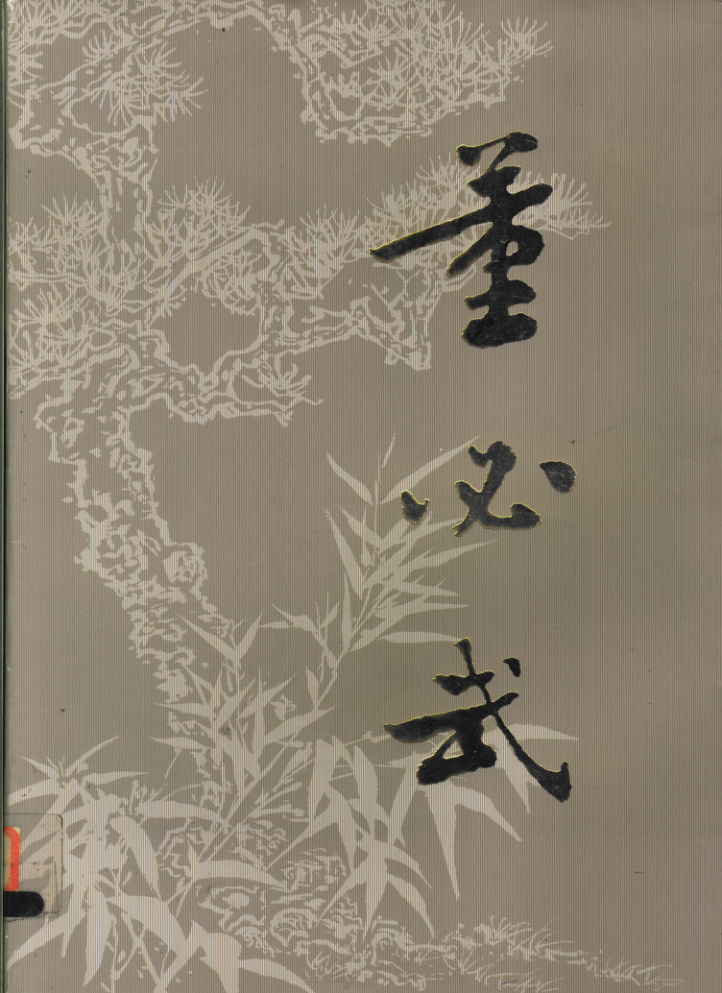 董必武